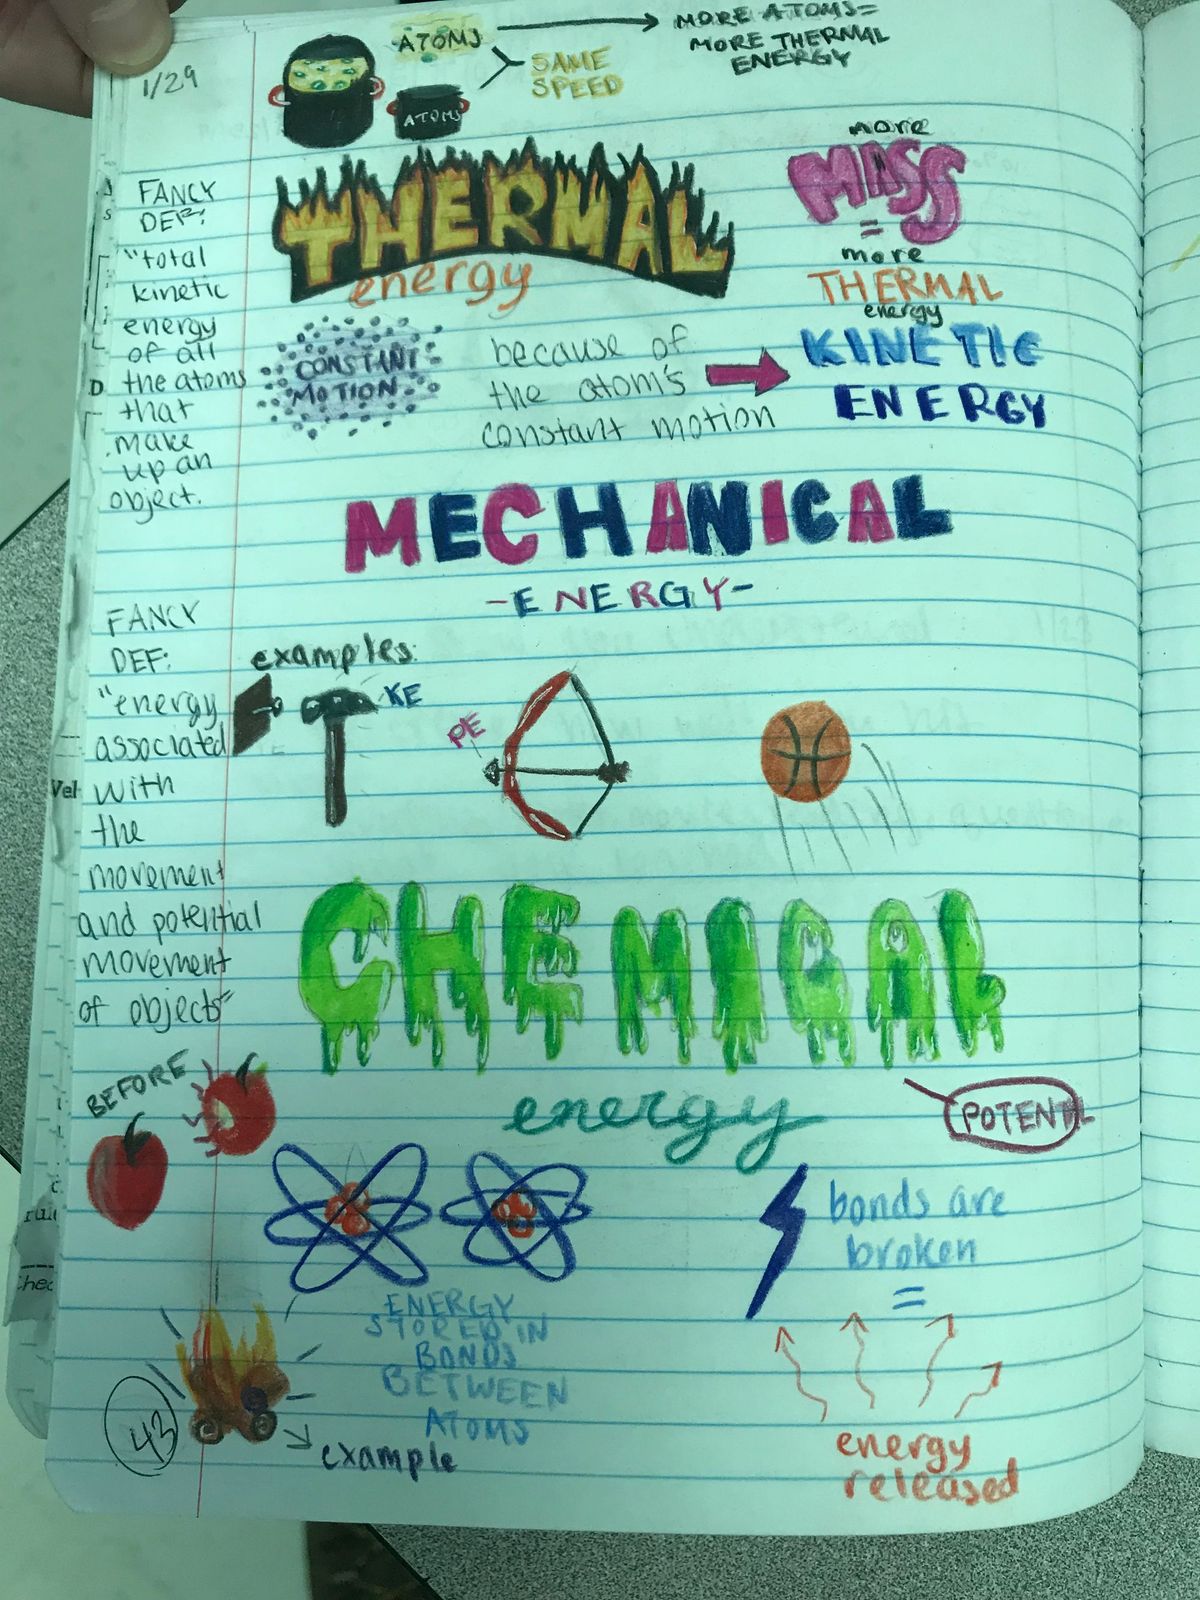 1/29
ATOMS
MORE ATOMS=
MORE THERMAL
ENERGY
SAME
SPEED
ATOMS
THERMAL
energy
more
MASS
=
more
THERMAL
energy
FANCY
DEF:
"total
kinetic
energy
of all
the atoms
that
make
up an
object.
CONSTANT
MOTION
because of
the atom's
constant motion
KINETIC
ENERGY
MECHANICAL
-ENERGY-
FANCY
DEF:
"energy
associated
with
the
movement
and potential
movement
of objects"
examples:
KE
PE
Vel
CHEMICAL
energy
POTENTL
BEFORE
bonds are
broken
=
energy
released
ENERGY
STORED IN
BONDS
BETWEEN
ATOMS
example
43